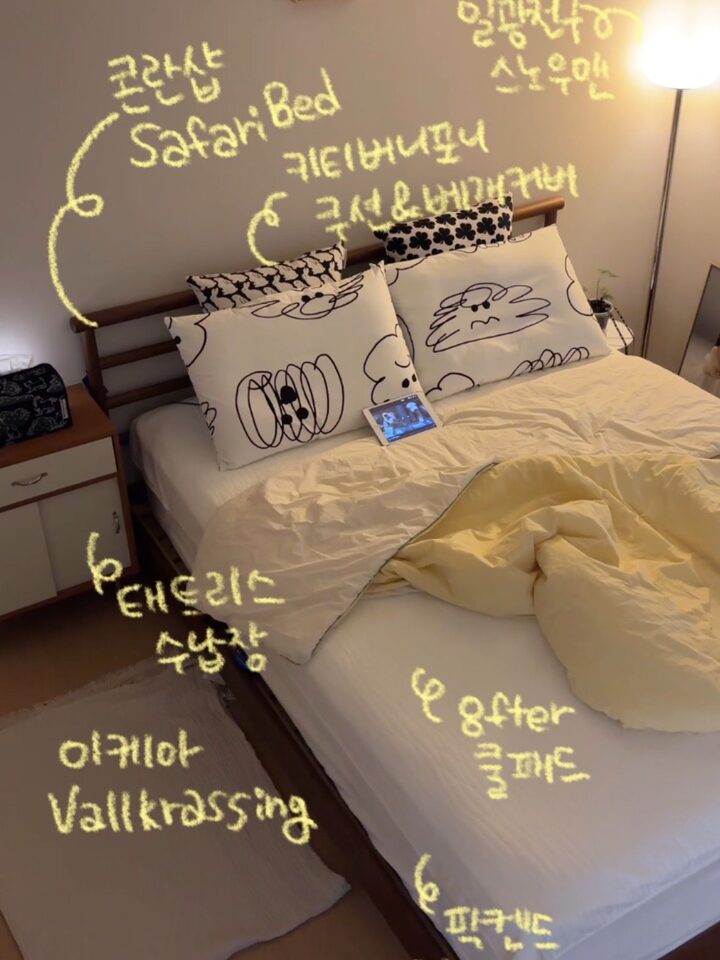 일광전구
스노우맨
콘란샵
Safari Bed
키티버니포니
쿠션&베개커버
태드리스
수납장
이케아
Vallkrassing
8fter
쿨패드
픽켄드